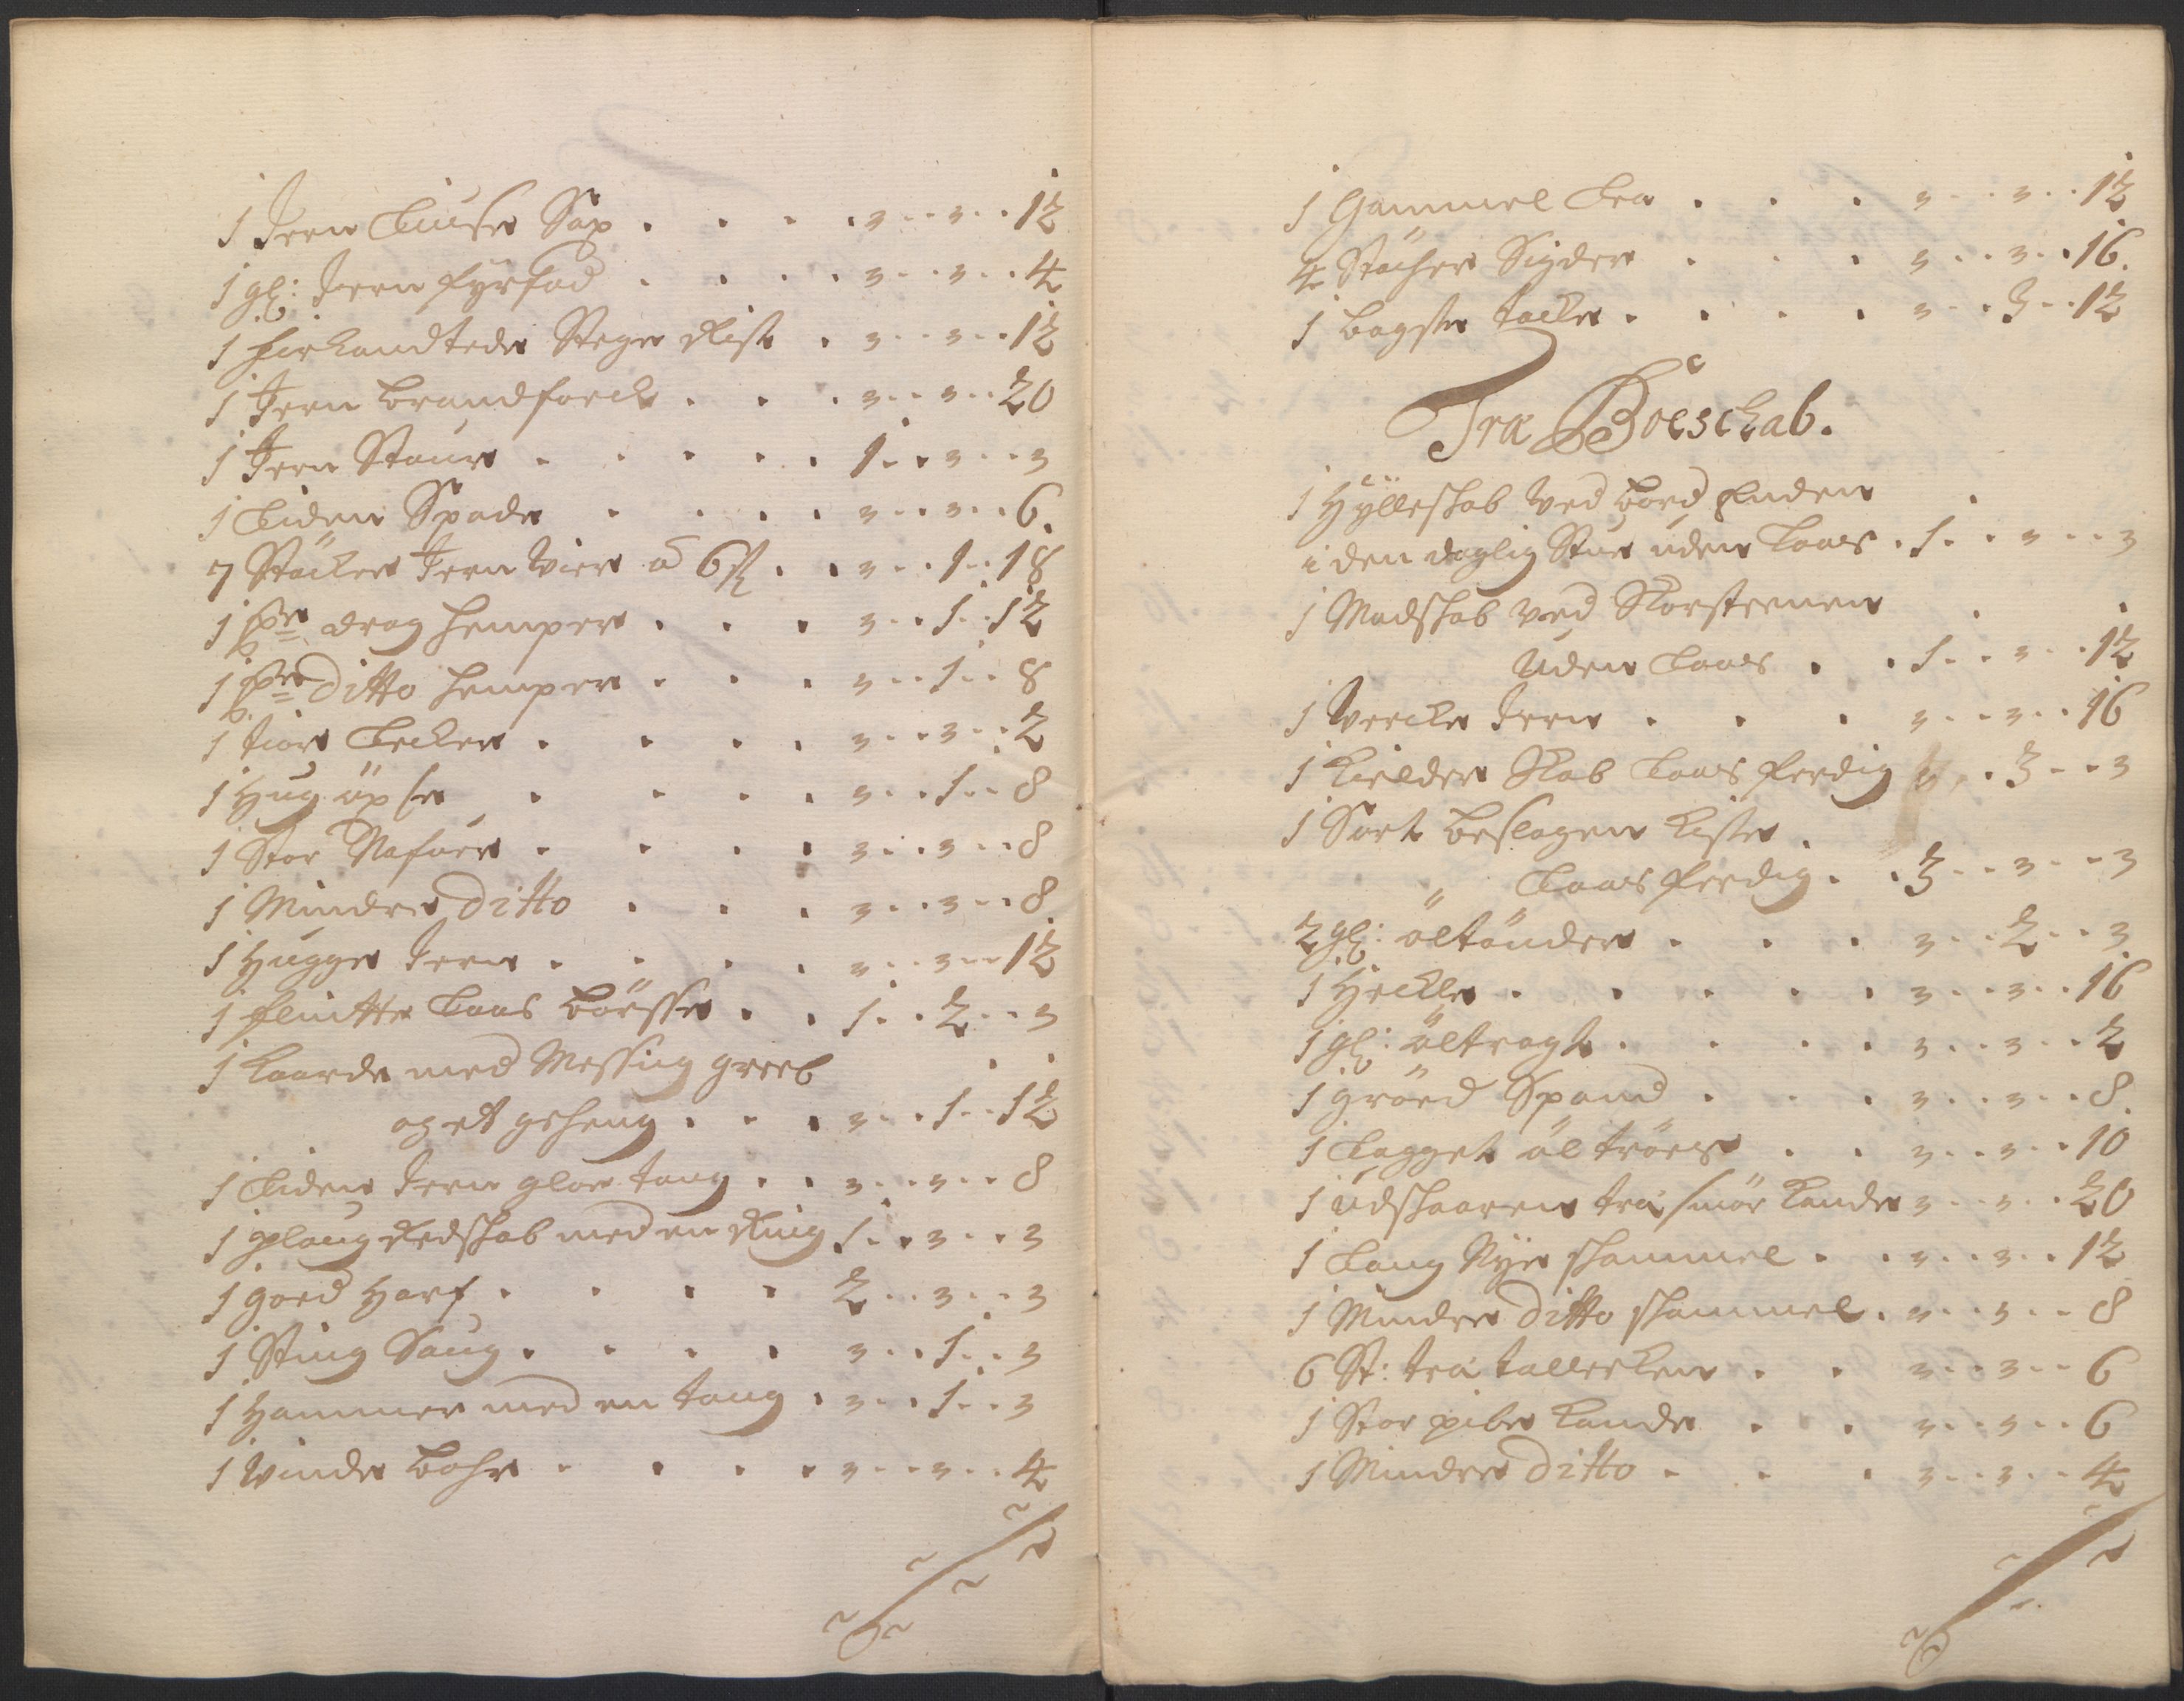 1 Jern Liuse Sax . . . . 3 . . 3 . . 12
1 gl: Jern fyrfad . . . . 3 . . 3 . . 4
1 firkandtede Stege Rist . 3 . . 3 . . 12
1 Jern brandforck . . . 3 . . 3 . . 20
1 Jern Staur . . . . . 1 . . 3 . . 3
1 Liden Spade . . . . 3 . . 3 . . 6.
7 Stöcker Jern Vier a 6 ß . . 3 . . 1 . . 18
1 pr drag hemper . . . 3 . . 1 . . 12
1 pr ditto hemper . . . 3 . . 1 . . 8
1 tior Lecker . . . . 3 . . 3 . . 2
1 Hug öxse . . . . 3 . . 1 . . 8
1 Stor Nafuer . . . . 3 . . 3 . . 8
1 Mindre ditto . . . 3 . . 3 . . 8.
1 Hugge Jern . . . . 3 . . 3 . . 12
1 flintte Laas bösse . . 1 . . 2 . . 3
1 Kaarde med Messing greeb
og et geheng . . . 3 . . 1 . . 12
1 Liden Jern gloe tang . . 3 . . 3 . . 8
1 ploug Redskab med en Ring 1 . . 3 . . 3
1 goed Harf . . . . 2 . . 3 . . 3
1 Sting Saug . . . . 3 . . 1 . . 3
1 Hammer med en tang . 3 . . 1 . . 3
1 Vinde bohr . . . . 3 . . 3 . . 4
1 Gammel Lea . . . 3 . . 3 . . 12
4 Stöcher Sigder . . . 3 . . 3 . . 16.
1 bagste tacke . . . . 3 . . 3 . . 12
Træ Boeschab.
1 Hylleskab ved bord Enden
i den daglig Stue uden Laas . 1 . . 3 . . 3
1 Madskab ved Skorsteenen
Uden Laas . . 1 . . 3 . . 12
1 Vercke Jern . . . 3 . . 3 . . 16
1 Kielder Skab Laas ferdig 3 . . 3 . . 3
1 Sort beslagen Kiste
Laas ferdig . . 3 . . 3 . . 3
2 gl: öltönder . . . 3 . . 2 . . 3
1 Heckle . . . . . 3 . . 3 . . 16
1 gl: öltragt . . . . 3 . . 3 . . 2
1 gröed Spand . . . 3 . . 3 . . 8.
1 Lagget öl tröes . . 3 . . 3 . . 10
1 udskaaren træ smör Kande 3 . . 3 . . 20
1 Lang Nye skammel . . 3 . . 3 . . 12
1 Mindre ditto skammel . 3 . . 3 . . 8
6 St: træ tallerken . . 3 . . 3 . . 6
1 Stor pibe Kande . . 3 . . 3 . . 6
1 Mindre ditto . . . 3 . . 3 . . 4